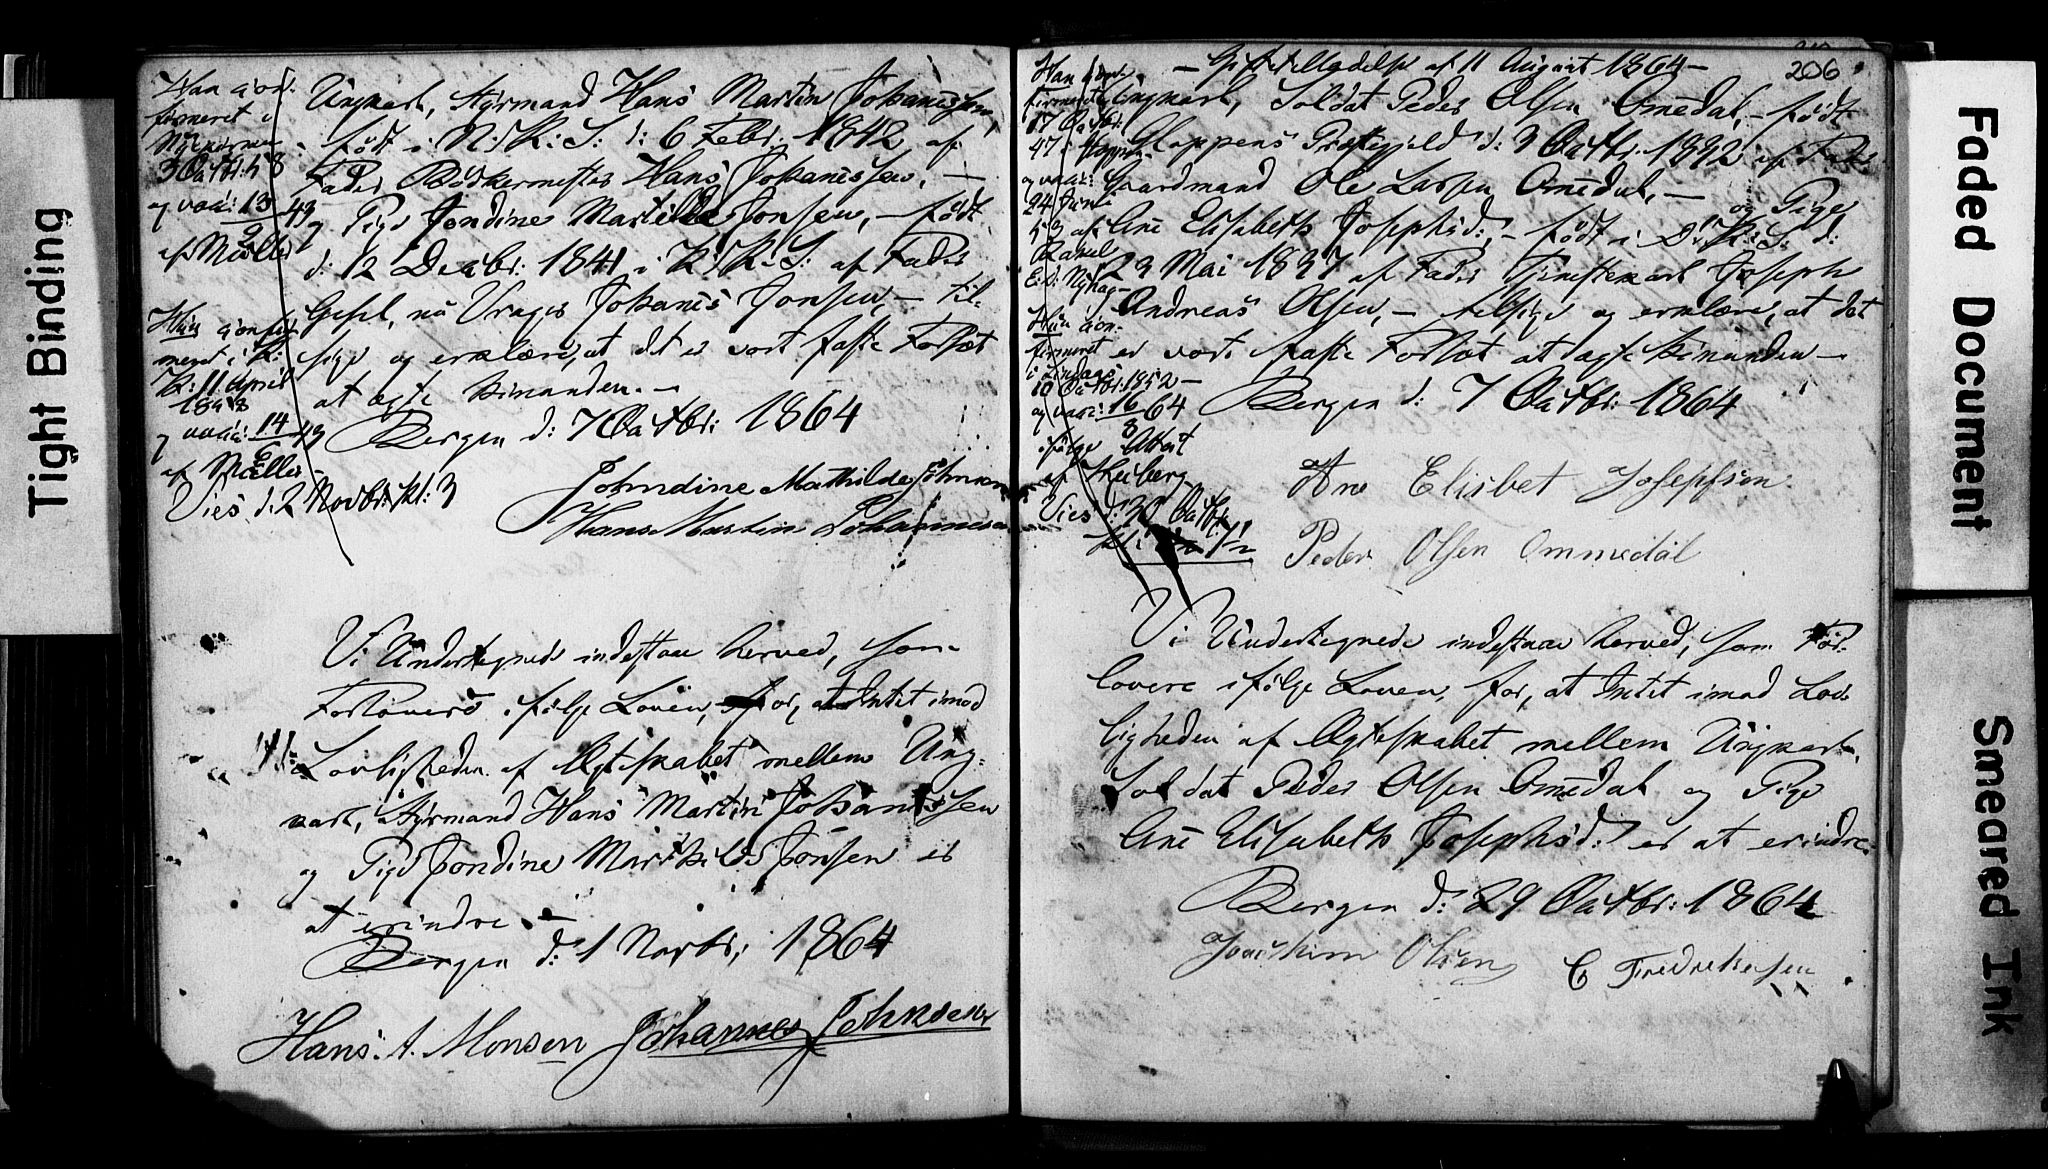 Tight Binding
Han conf:
firmeret i
Nykirken
3 Octbr: 58
og vacc: 13/9 49
af Møller
Hun confir
meret i K:
K: 11 April
1858
og vacc: 14/6 43
af Møller
Vies d: 2 Novbr: kl: 3
Ungkarl, Styrmand Hans Martin Johanessen,
født i N: K: S: d: 6 Febr: 1842 af
Fader Bødkermester Hans Johanessen, —
og Pige Jondine Martilde Jonsen, — født
d: 12 Decbr: 1841 i K: K: S: af Fader
Gesel, nu Vrager Johanes Jonsen, — til-
sige og erklære, at det er vort faste Forsæt
at ægte hinanden. —
Bergen d: 7 Octbr: 1864
Johndine Mathilde Johnsen
Hans Martin Johannesen
Vi Undertegnede indestaae herved, som
Forlovere ifølge Loven, for, at Intet imod
Lovligheden af Ægteskabet mellem Ung-
karl, Styrmand Hans Martin Johanessen
og Pige Jondine Martilde Jonsen er
at erindre —
Bergen d: 1 Novbr: 1864
Hans. A. Monsen Johannes Johnsen
206
— Giftetilladelse af 11 August 1864 —
Han conf:
firmeret
17 Octbr:
47 i Gloppen
og vacc:
24 Juni
53 af
E. D: Nyhag—
Hun con-
firmeret
i Lindaas
10 Octbr: 1852 —
og vacc: 16/8 64
ifølge Attest
af Heiberg
Vies d: 30 Octbr:
kl: 7 1/2
Ungkarl, Soldat Peder Olsen Omedal, — født
Gloppens Præstegjeld d: 3 Octbr: 1832 af Fader
Gaardmand Ole Larsen Omedal, — og Pige
Ane Elisabeth Josephsd:, — født i D: K: S: d:
23 Mai 1837 af Fader Tjenestekarl Joseph
Andreas Olsen, — tilsige og erklære, at det
er vort faste Forsæt at ægte hinanden —
Bergen d: 7 Octbr: 1864
Ane Elisbet Josephsen
Peder Olsen Ommedal
Vi Undertegnede indestaae herved, som For-
lovere ifølge Loven, for, at Intet imod Lov-
ligheden af Ægteskabet mellem Ungkarl,
Soldat Peder Olsen Omedal og Pige
Ane Elisabeth Josephsd: er at erindre.
Bergen d: 29 Octbr: 1864
Joachim Olsen C Fredriksen
Faded Document
Smeared Ink